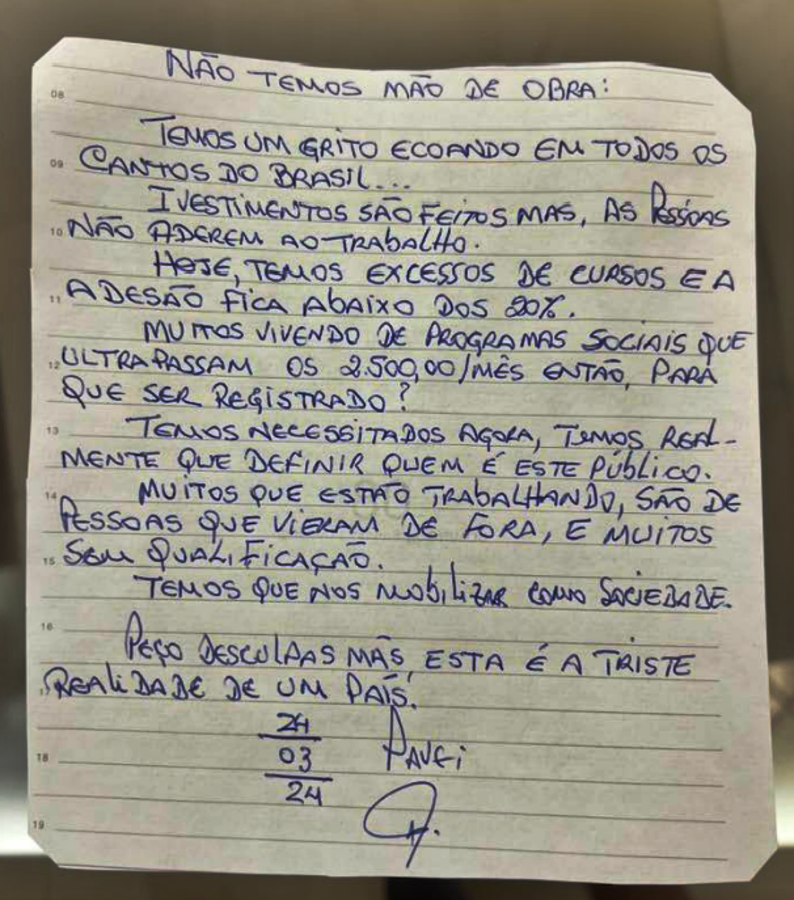 NÃO TEMOS MÃO DE OBRA:
08
TEMOS UM GRITO ECOANDO EM TODOS OS
09 CANTOS DO BRASIL...
IVESTIMENTOS SÃO FEITOS MAS, AS PESSOAS
10 NÃO ADEREM AO TRABALHO.
HOJE, TEMOS EXCESSOS DE CURSOS E A
11 ADESÃO FICA ABAIXO DOS 20%.
MUITOS VIVENDO DE PROGRAMAS SOCIAIS QUE
12 ULTRAPASSAM OS 2.500,00/MÊS ENTÃO, PARA
QUE SER REGISTRADO?
13 TEMOS NECESSITADOS AGORA, TEMOS REAL-
MENTE QUE DEFINIR QUEM É ESTE PÚBLICO.
14 MUITOS QUE ESTÃO TRABALHANDO, SÃO DE
PESSOAS QUE VIERAM DE FORA, E MUITOS
15 SEM QUALIFICAÇÃO.
TEMOS QUE NOS MOBILIZAR COMO SOCIEDADE.
16
PEÇO DESCULPAS MÁS, ESTA É A TRISTE
REALIDADE DE UM PAÍS.
24
03 PAVEI
18
24
19